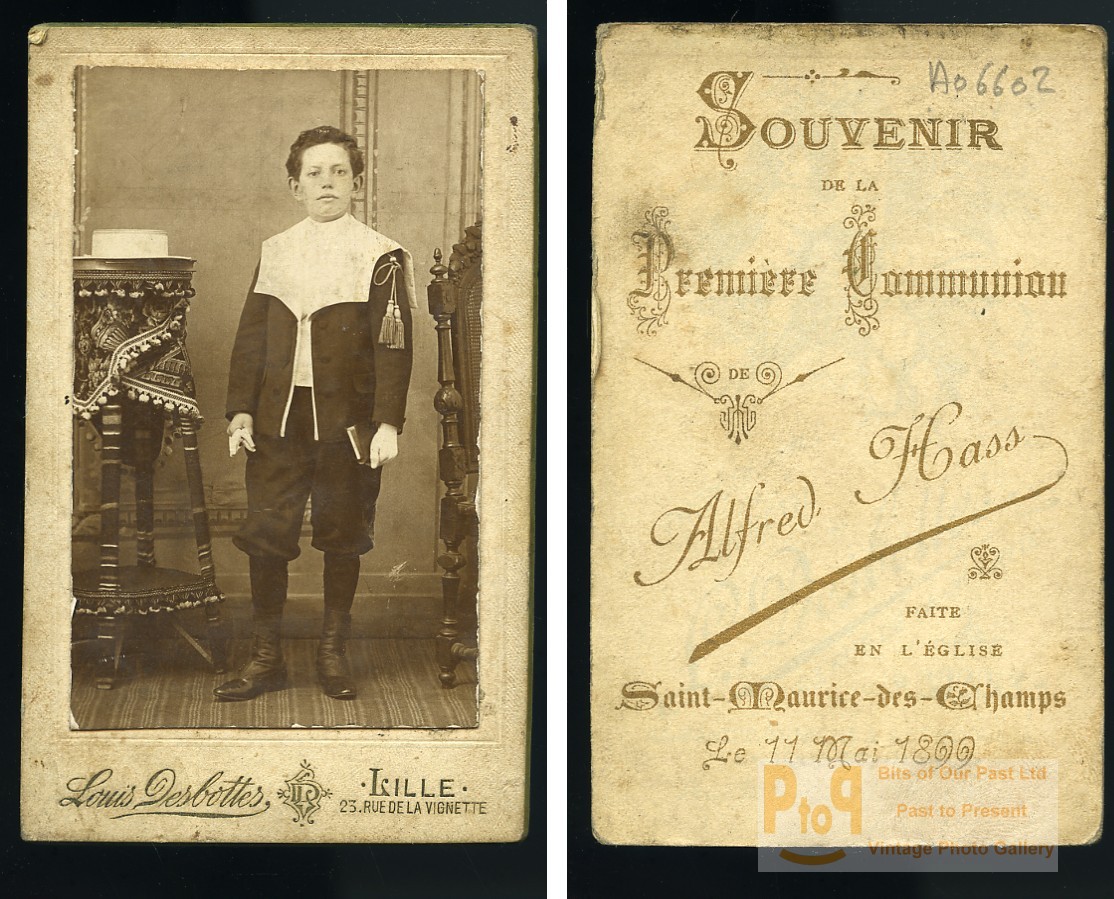 Louis Desbottes,
LD
· LILLE ·
23. RUE DE LA VIGNETTE
A06602
SOUVENIR
DE LA
Première Communion
DE
Alfred Hass
FAITE
EN L'ÉGLISE
Saint-Maurice-des-Champs
Le 11 Mai 1899
PtoP
Bits of Our Past Ltd
Past to Present
Vintage Photo Gallery